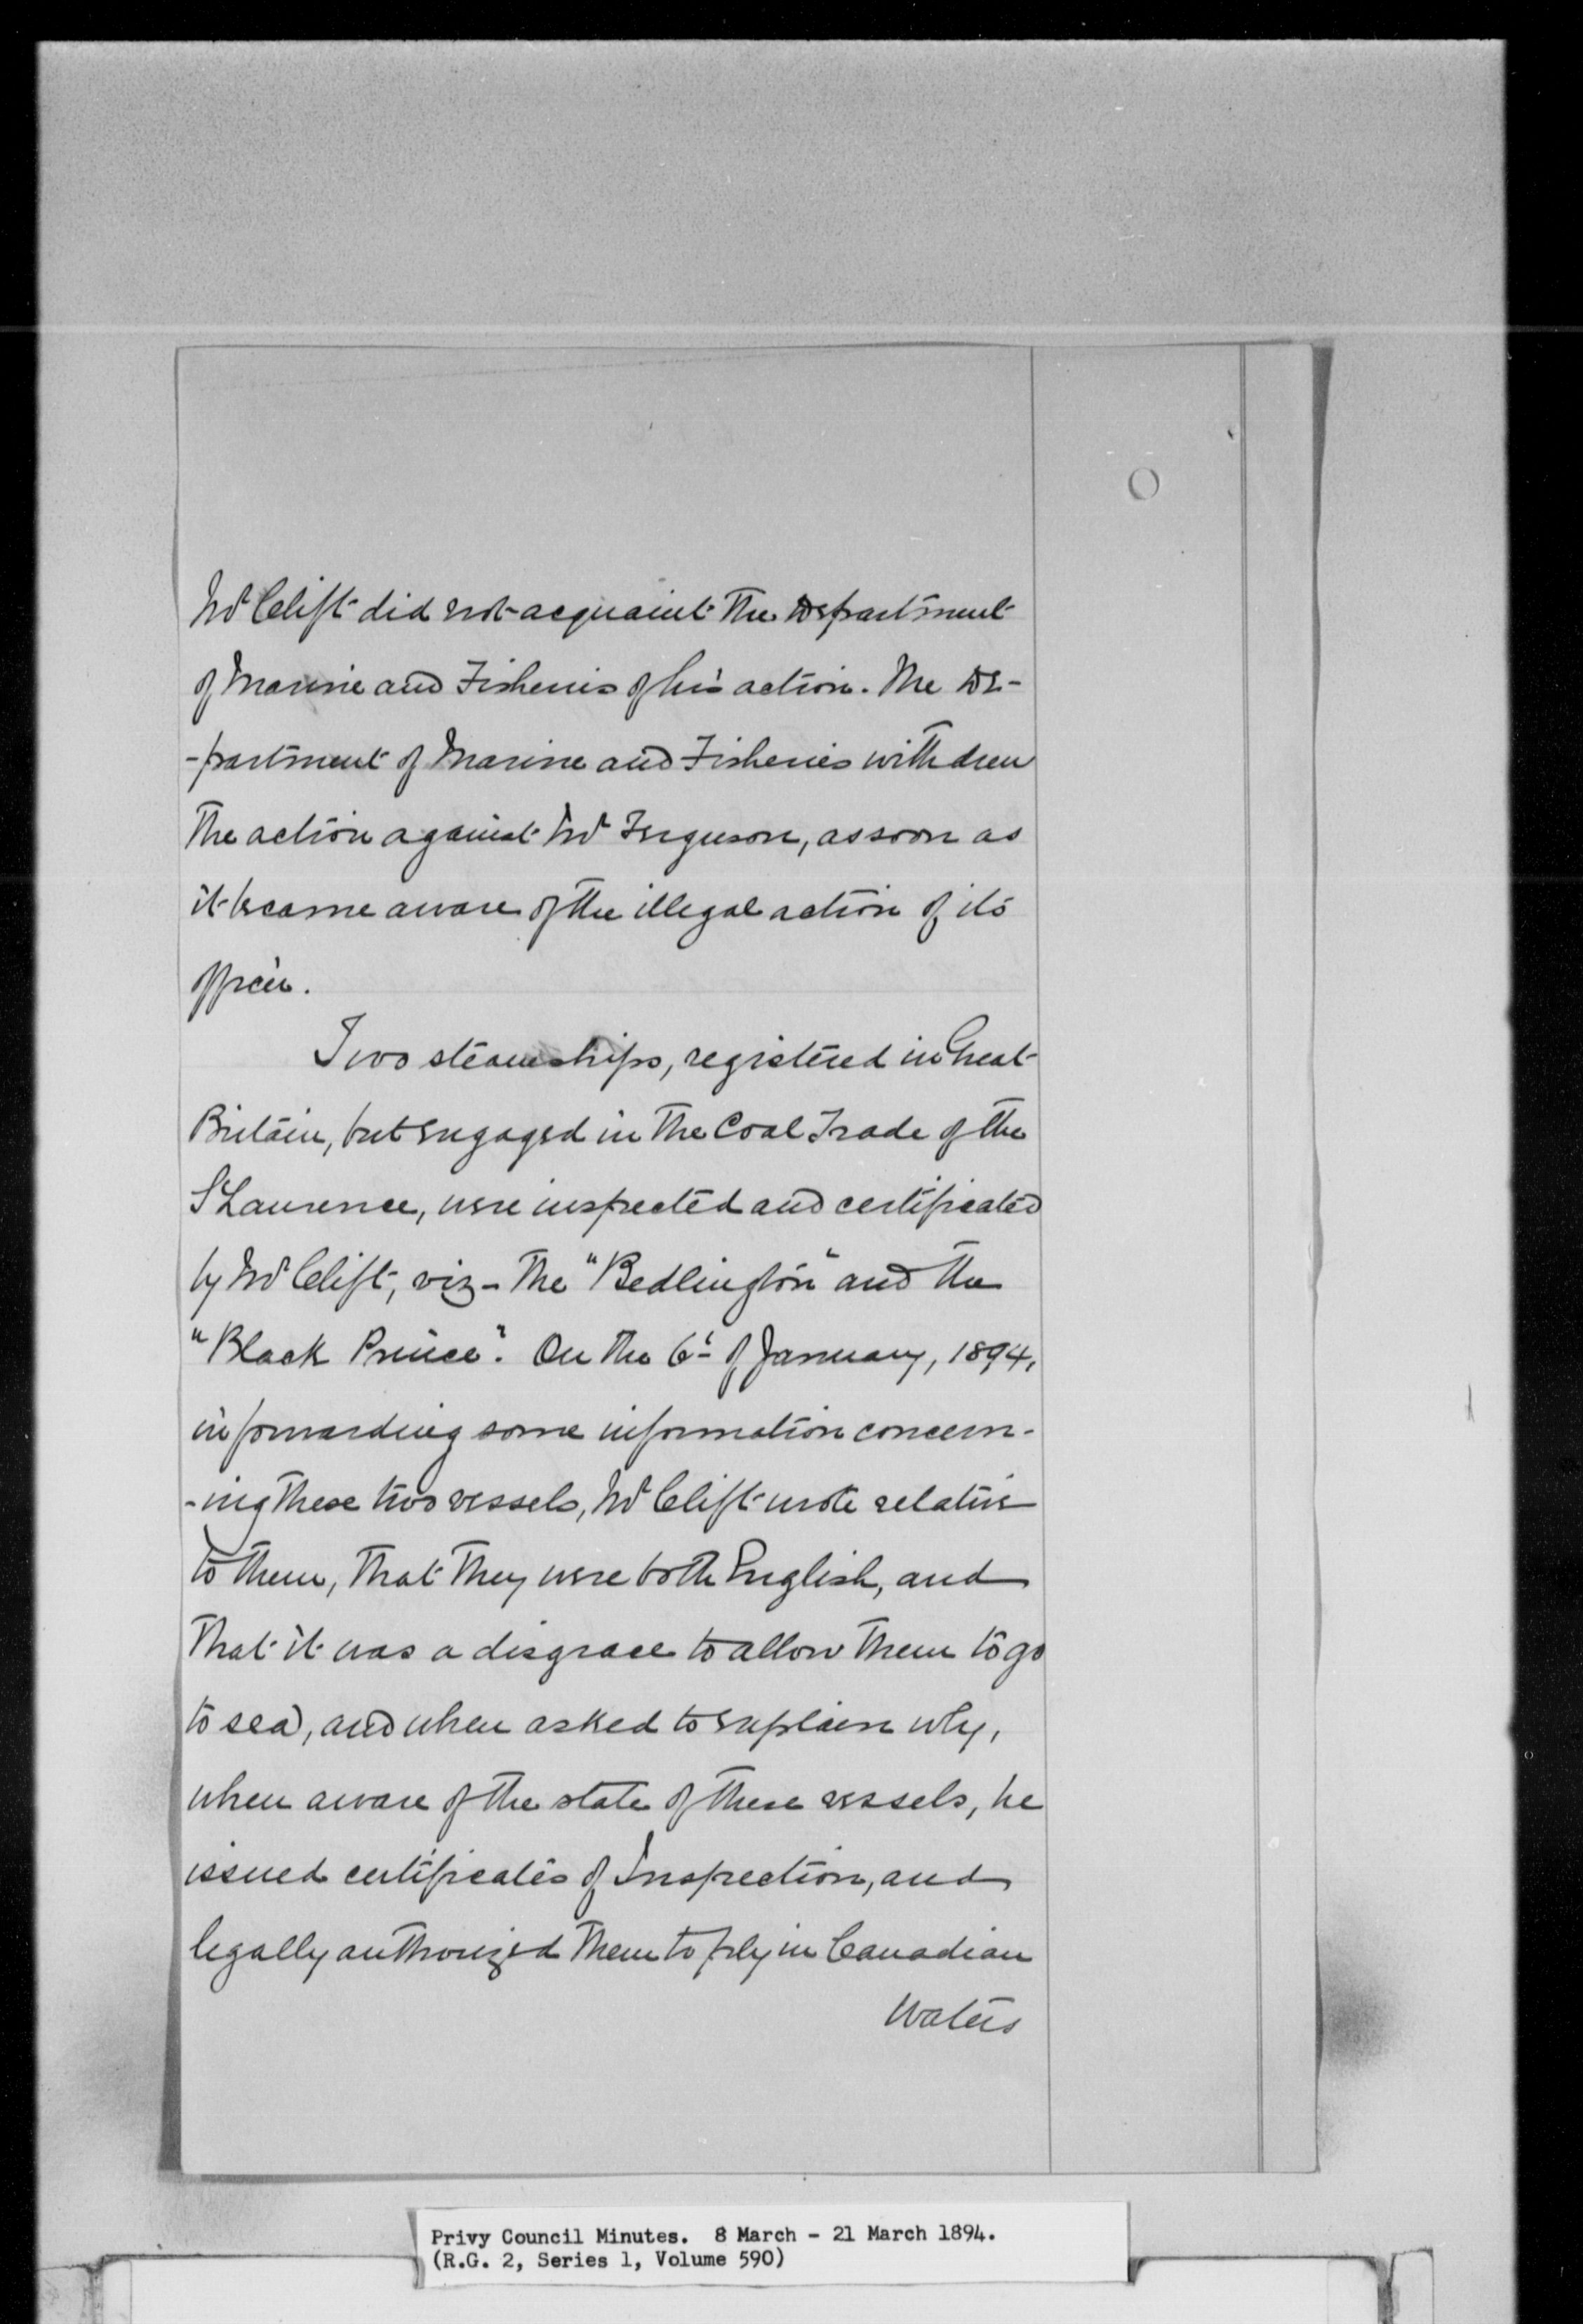 Mr Clift did not acquaint the Department
of Marine and Fisheries of his action. The De-
-partment of Marine and Fisheries withdrew
the action against Mr Ferguson, as soon as
it became aware of the illegal action of its
officer.
Two steamships, registered in Great
Britain, but engaged in the Coal Trade of the
St Laurence, were inspected and certificated
by Mr Clift, viz - The "Bedlington" and the
"Black Prince". On the 6th of January, 1894,
in forwarding some information concern-
-ing these two vessels, Mr Clift wrote relative
to them, that they were both English, and
that it was a disgrace to allow them to go
to sea, and when asked to explain why,
when aware of the state of these vessels, he
issued certificates of Inspection, and
legally authorized them to ply in Canadian
Waters
Privy Council Minutes. 8 March - 21 March 1894.
(R.G. 2, Series 1, Volume 590)